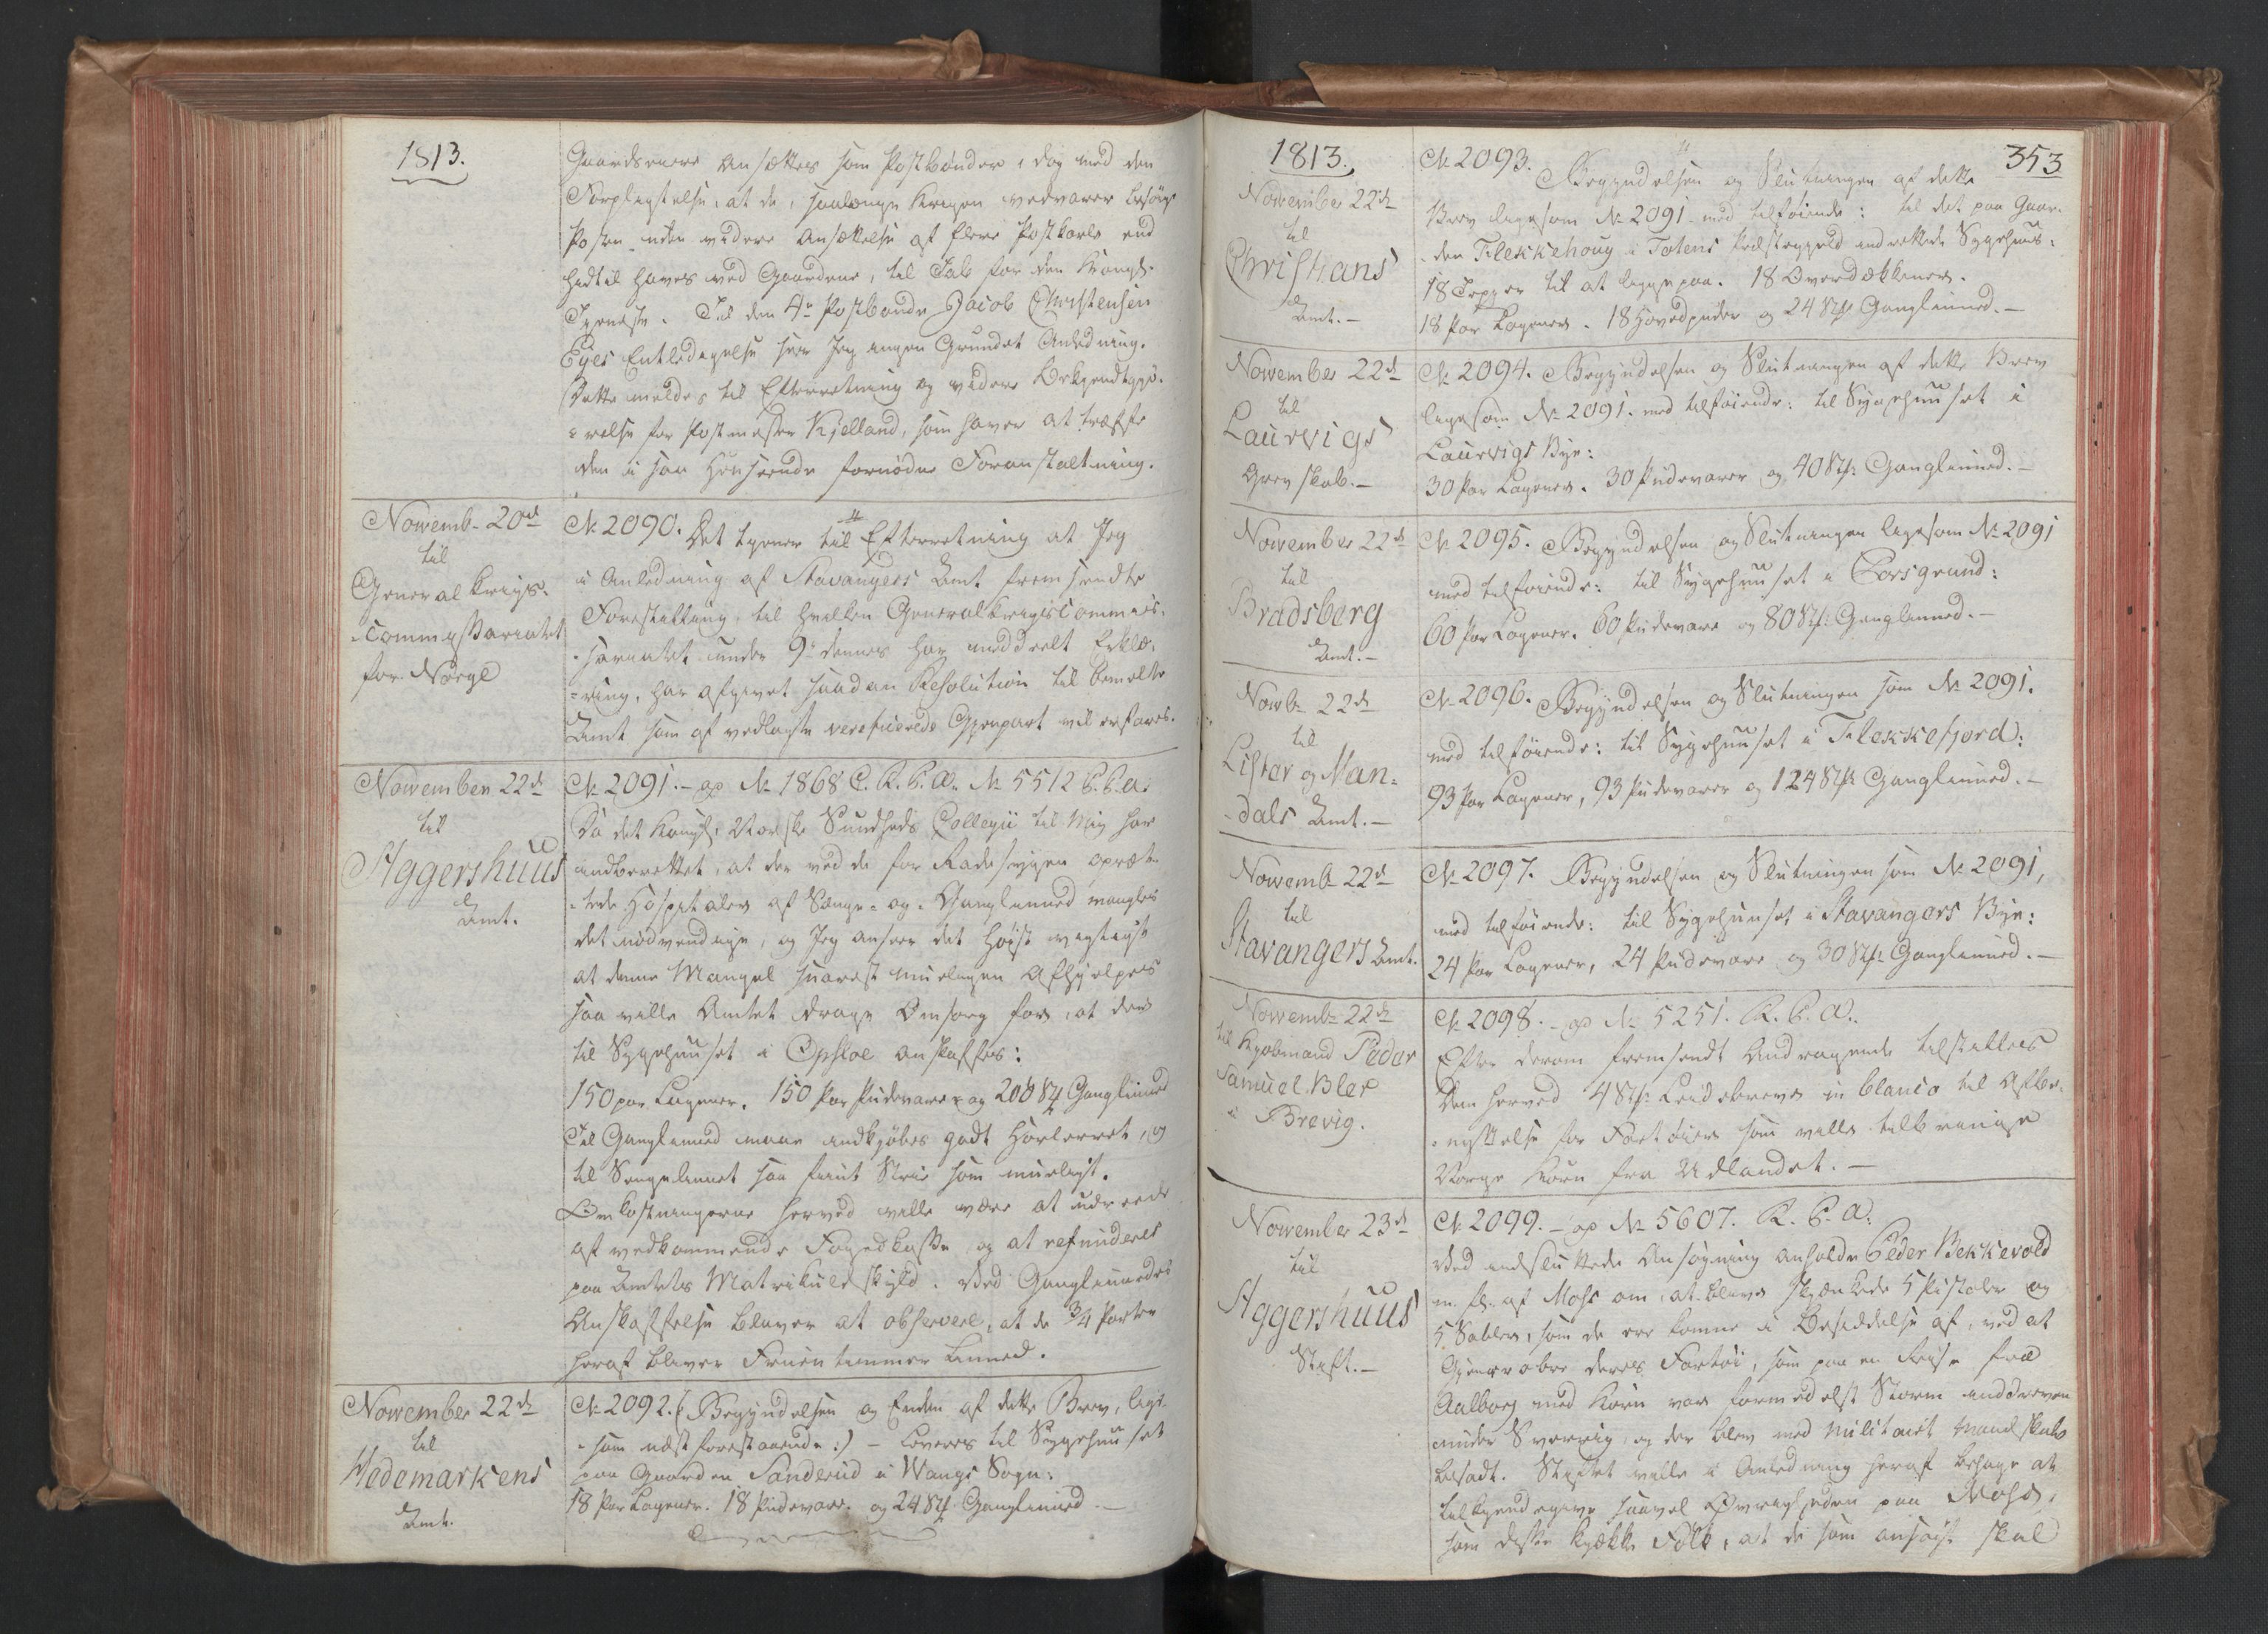 1813.
Gaardenere ansættes som Postbønder, dog med den
Forpligtelse, at de, saalænge Krigen vedvarer besørge
Posten uden videre Ansættelse af flere Postkarle end
hidtil haves ved Gaardene, til Tab for den Kongl.
Tjeneste. Til den 4de Postbonde Jacob Christensen
Eges Entledigelse seer Jeg ingen Grundet Anledning.
Dette meldes til Efterretning og videre Bekjendtgjö-
relse for Postmester Kjelland, som haver at træffe
den i saa Henseende fornødne Foranstaltning.
Novemb. 20de
til
General Krigs-
Commissariatet
for Norge
No 2090. Det tjener til Efterretning at Jeg
i Anledning af Stavangers Amt fremsendte
Forestilling, til hvilken General Krigscommis-
sariatet under 9de dennes har meddeelt Erklæ-
ring, har afgivet saadan Resolution til bemelte
Amt som af vedlagte verificerede Gjenpart vil erfares.
November 22de
til
Aggershuus
Amt.
No 2091. - ap No 1868 C. K. B. A. No 5512 B. B. a.
Da det Kongl. Norske Sundheds Collegii til Mig har
indberettet, at der ved de for Radesygen opret-
tede Hospitaler af Senge- og Ganglinned mangles
det nødvendige, og Jeg anseer det høist vigtigst
at denne Mangel snarest mueligen Afhjelpes
saa ville Amtet drage Omsorg for, at der
til Sygehuuset i Opsloe anskaffes:
150 par Lagener. 150 Par Pudevarer og 200 Stk Ganglinned
Til Ganglinned maae indkjöbes godt Hørlerret, og
til Sengelinnet saa fiint Strie som mueligt.
Omkostningerne herved ville være at udreede
af vedkommende Fogedkasse og at refunderes
paa Amtets Matrikuleskyld. Ved Ganglinnedes
Anskaffelse bliver at observere, at de 3/4 Parter
heraf bliver Fruentimmer Linned.
November 22de
til
Hedemarkens
Amt.
No 2092. (: Begyndelsen og Enden af dette Brev, lige-
som næst forestaaende :) - Leveres til Sygehuuset
paa Gaarden Sanderud i Wangs Sogn:
18 Par Lagener. 18 Pudevare. og 24 Stk Ganglinned. -
1813.
353
November 22de
til
Christians
Amt. -
No 2093. Begyndelsen og Slutningen af dette
Brev ligesom No 2091 med tilføiende: til det paa Gaar-
den Flekkehoug i Totens Præstegjeld indrettede Sygehuus:
18 Tepper til at ligge paa. 18 Overdækkener.
18 Par Lagener. 18 Hovedpuder og 24 Stk Ganglinned. -
November 22de
til
Laurvigs
Grevskab. -
No 2094. Begyndelsen og Slutningen af dette Brev
ligesom No 2091. med tilføiende: til Sygehuuset i
Laurvigs Bye:
30 Par Lagener. 30 Pudevarer og 40 Stk: Ganglinned. -
November 22de
til
Bradsberg
Amt. -
No 2095. Begyndelsen og Slutningen ligesom No 2091
med tilføiende: til Sygehuuset i Porsgrund:
60 Par Lagener. 60 Pudevare og 80 Stk: Ganglinned. -
Novb. 22de
til
Lister og Man-
dals Amt. -
No 2096. Begyndelsen og Slutningen som No 2091.
med tilføiende: til Sygehuuset i Flekkefjord:
93 Par Lagener, 93 Pudevarer og 124 Stk Ganglinned. -
Novemb. 22de
til
Stavangers Amt.
No 2097. Begyndelsen og Slutningen som No 2091,
med tilføiende: til Sygehuuset i Stavangers Bye:
24 Par Lagener, 24 Pudevare og 30 Stk: Ganglinned. -
Novemb. 22de
til Kjøbmand Peder
Samuel Bler
i Brevig.
No 2098. - ap No 5251. K. B. A.
Efter derom fremsendt Andragende tilstilles
Dem herved 4 Stk: Leidebreve in blanco til Afbe-
nyttelse for Fartøier som ville tilbringe
Norge Korn fra Udlandet. -
November 23de
til
Aggershuus
Stift. -
No 2099. - ap No 5607. K. B. A:
Ved indsluttede Ansøgning anholde Peder Bekkevold
m. fl. af Moss om, at blive skjænkede 5 Pistoler og
5 Sabler, som de ere komne i Besiddelse af, ved at
Gjenerobre deres Fartöi, som paa en Reise fra
Aalborg med Korn var formedelst Storm inddreven
under Sverrig, og der blev med militairt Mandskab
besadt. Stiftet ville i Anledning heraf behage at
tilkjendegive saavel Øvrigheden paa Moss,
som disse kjække Folk, at de som ansøgt skal